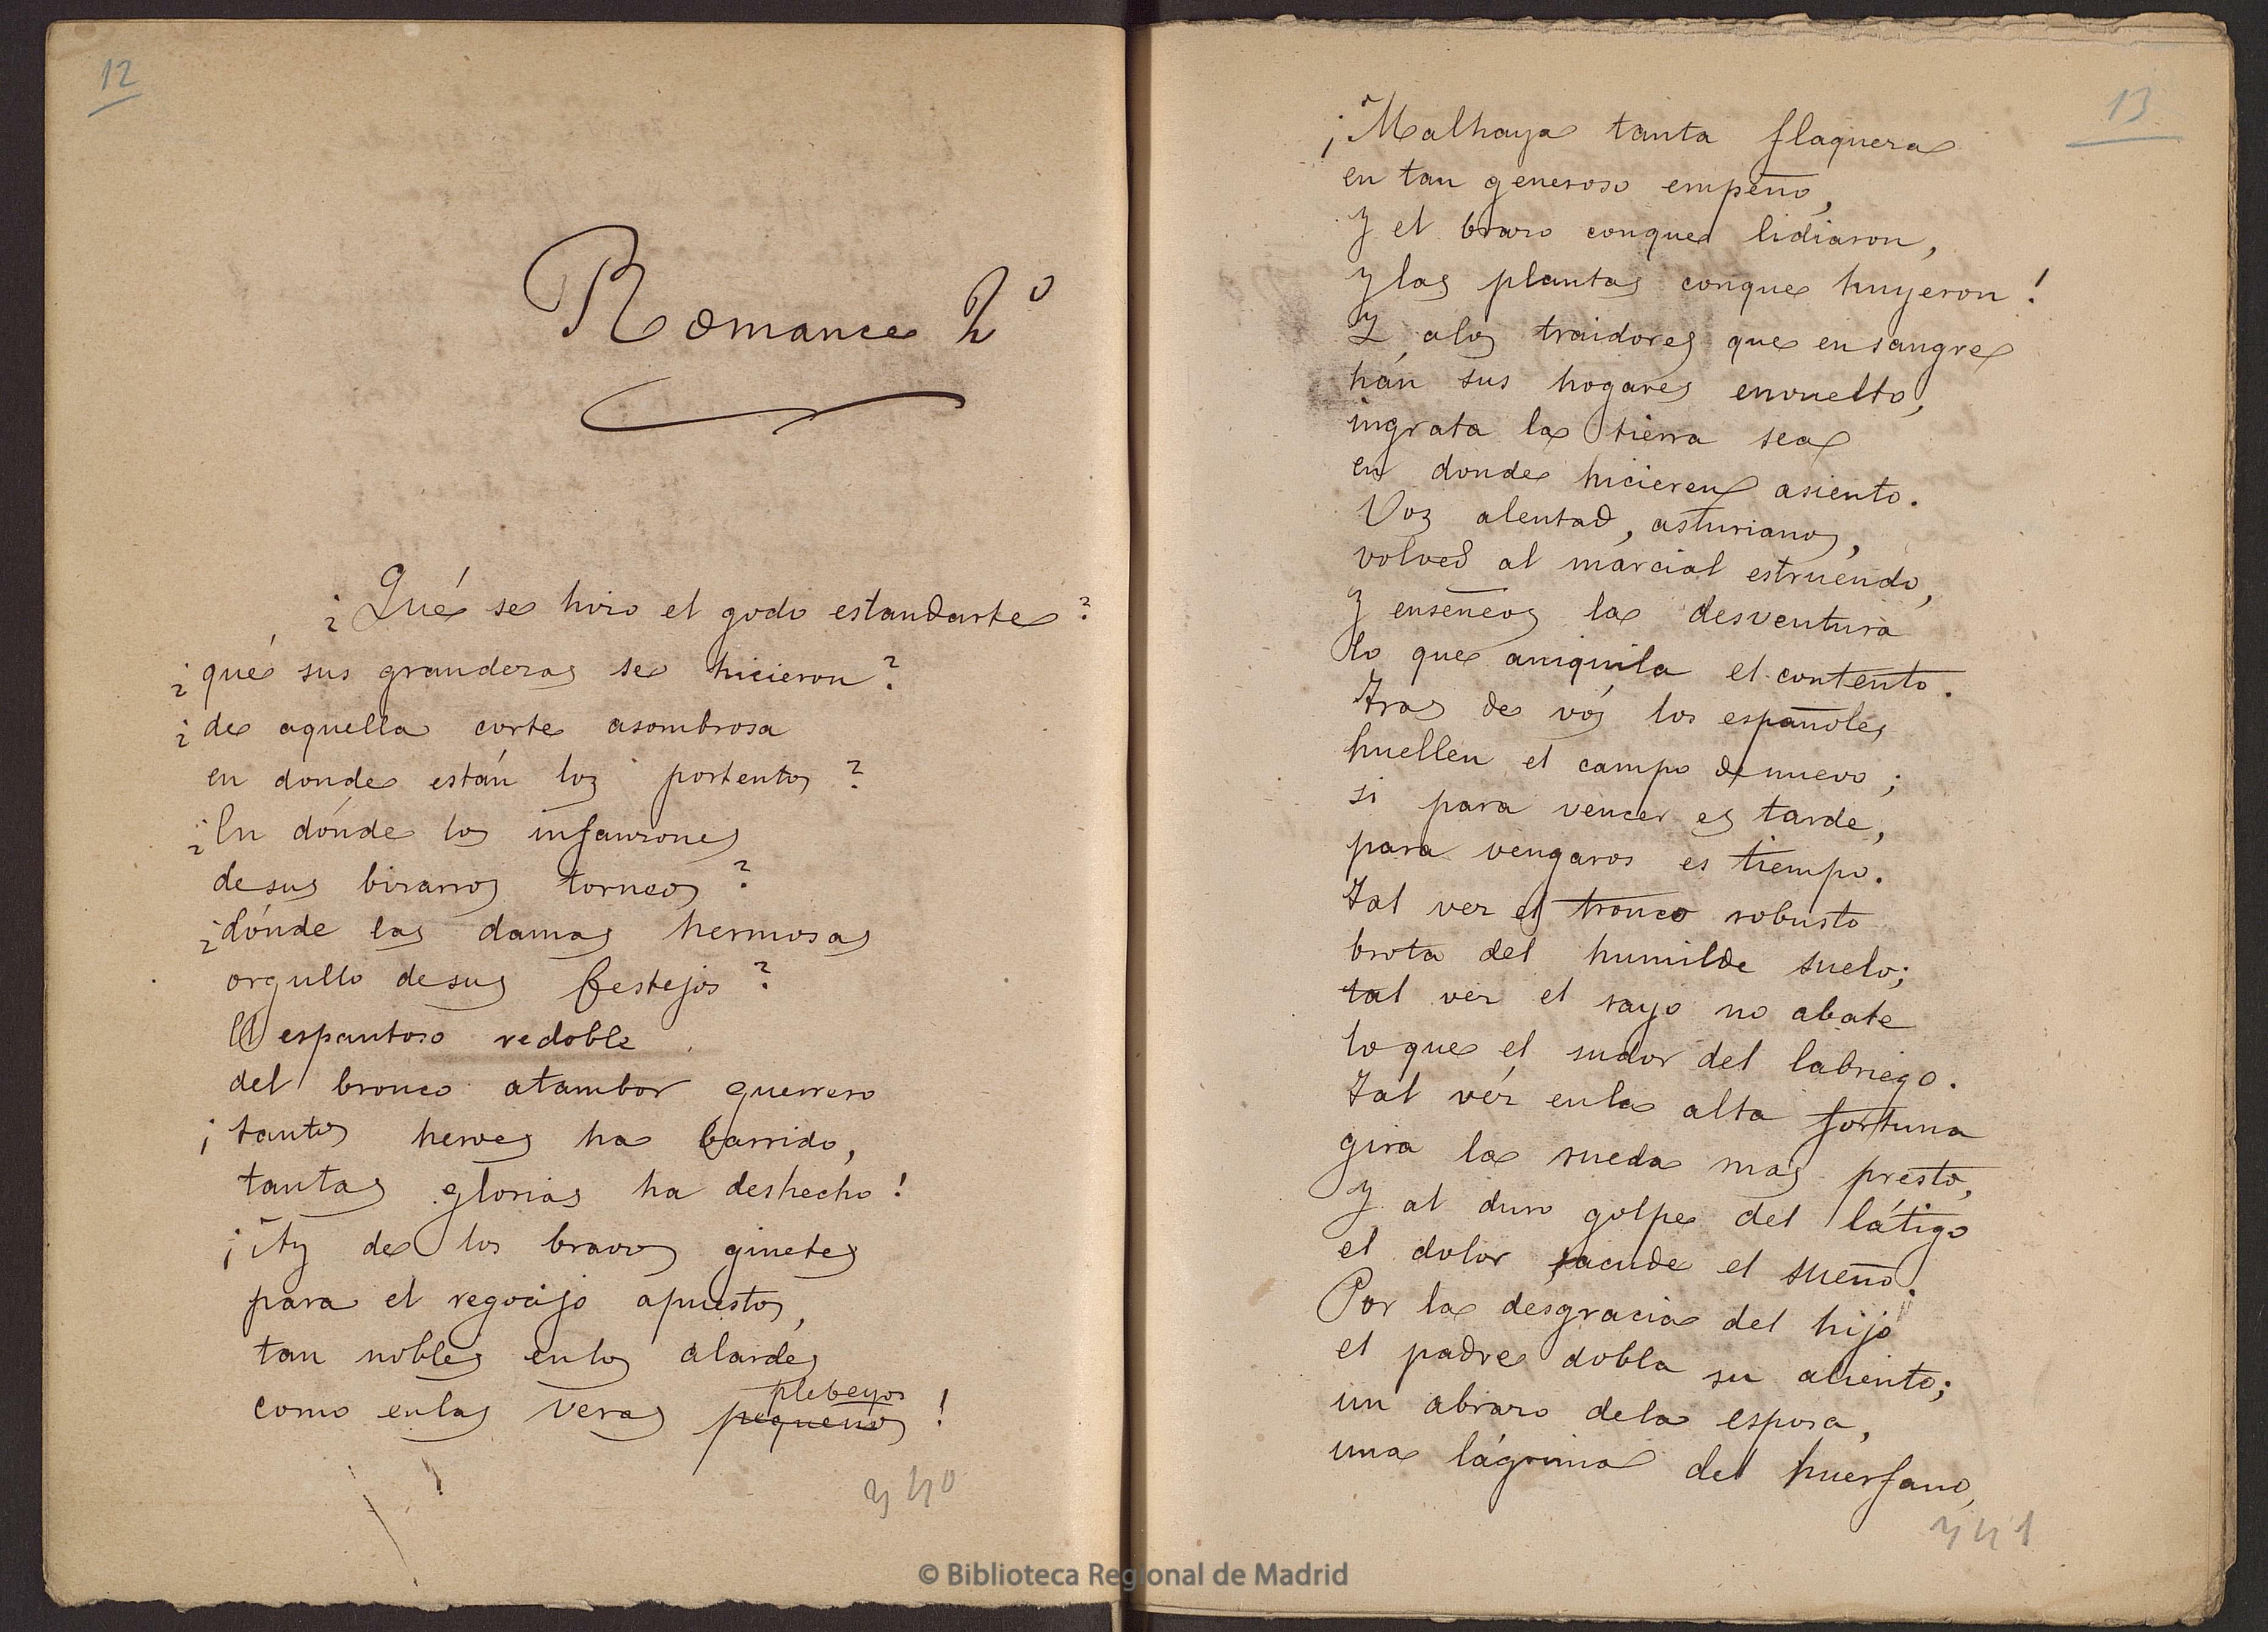 12
Romance 2º
¿Qué se hizo el godo estandarte?
¿qué sus grandezas se hicieron?
¿de aquella corte asombrosa
en donde están los portentos?
¿En dónde los infanzones
desus bizarros torneos?
¿dónde las damas hermosas
orgullo desus festejos?
El espantoso redoble
del bronco atambor guerrero
¡tantos heroes ha barrido,
tantas glorias ha deshecho!
¡Ay de los bravos ginetes
para el regocijo apuestos,
tan nobles enlos alardes
plebeyos
como enlas veras pequeños!
340
13
¡Malhaya tanta flaqueza
en tan generoso empeño,
y el brazo conque lidiaron,
y las plantas conque huyeron!
Y alos traidores que ensangre
hán sus hogares envuelto,
ingrata la tierra sea
en donde hicieren asiento.
Vos alentad, asturianos,
volved al marcial estruendo,
y enseñeos la desventura
lo que aniquila el contento.
Tras de vós los españoles
huellen el campo de nuevo;
si para vencer es tarde,
para vengaros es tiempo.
Tal vez el tronco robusto
brota del humilde suelo;
tal vez el rayo no abate
loque el sudor del labriego.
Tal véz enla alta fortuna
gira la rueda mas presto,
y al duro golpe del látigo
el dolor sacude el sueño.
Por la desgracia del hijo
el padre dobla su aliento;
un abrazo dela esposa,
una lágrima del huerfano,
341
© Biblioteca Regional de Madrid